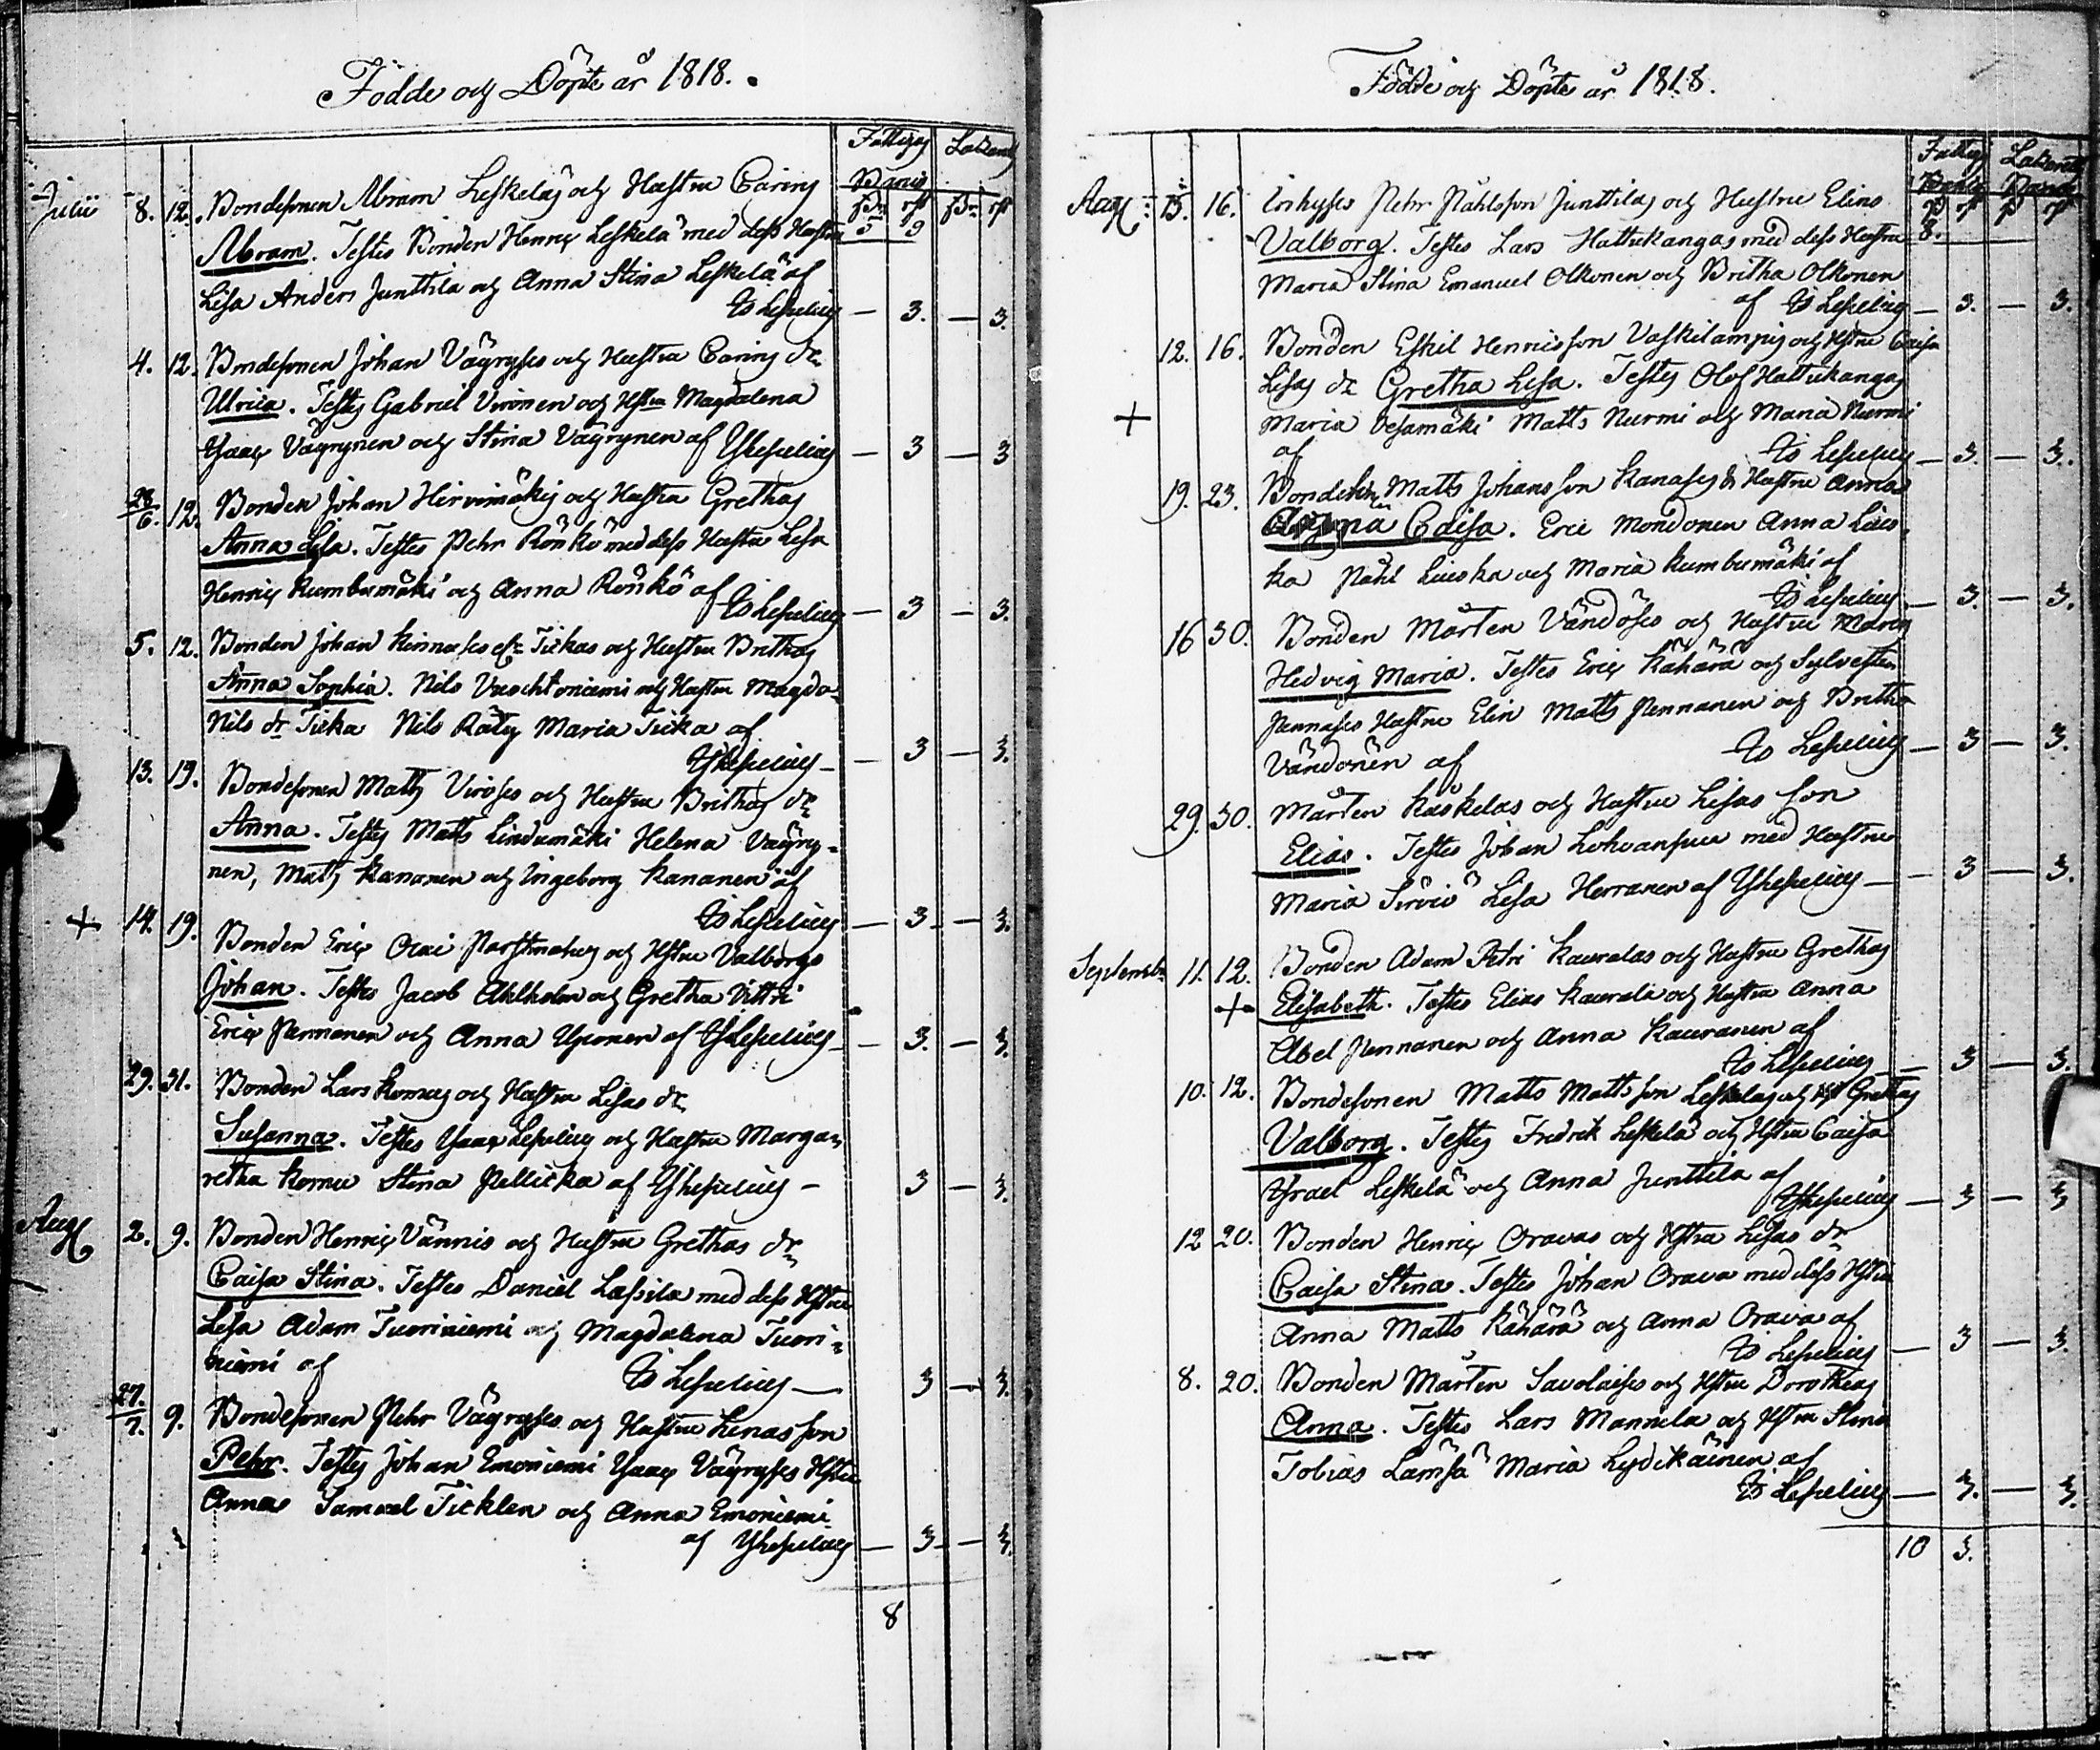 Födde och Döpte år 1818.
Fattigas Lazarett
Banco
Julii 8. 12. Bondesonen Abram Leskeläs och Hustru Carins
Abram. Testes Bonden Henric Leskelä med dess Hustru 5 9
Lisa Anders Junttila och Anna Stina Leskelä af
Is Lepelius — 3. — 3.
4. 12. Bondesonen Johan Väyryses och Hustru Carins dr
Ulrica. Testes Gabriel Vironen och Hstru Magdalena
Isaac Väyrynen och Stina Väyrynen af Is Lepelius — 3 — 3
28/6. 12. Bonden Johan Hirvimäkis och Hustru Grethas
Anna Lisa. Testes Pehr Rönkö med dess Hustru Lisa
Henric Kumbumäki och Anna Rönkö af
Is Lepelius — 3 — 3.
5. 12. Bonden Johan Tickas och Hustru Brithas
Anna Sophia. Nils och Hustru Magda-
Nils dr Ticka Nils Räty Maria Ticka af
Is Lepelius — 3 — 3.
13. 19. Bondesonen Matts Viroses och Hustru Brithas dr
Anna. Testes Matts Lindumäki Helena Väyry-
nen, Matts Kananen och Ingeborg Kananen af
Is Lepelius — 3 — 3.
+ 14. 19. Bonden Eric Olai och Hstru Valborgs
Johan. Testes Jacob Ahlholm och Gretha Vittri
Eric Pennanen och Anna af Is Lepelius — 3. — 3.
29. 31. Bonden Lars Komus och Hustru Lisas dr
Susanna. Testes Isaac Lepelius och Hustru Marga-
retha Komu Stina Pellicka af Is Lepelius — 3 — 3.
Aug 2. 9. Bonden Henric Vännis och Hustru Grethas dr
Caisa Stina. Testes Daniel Lassila med dess Hstru
Lisa Adam Tuoriniemi och Magdalena Tuori-
niemi af Is Lepelius — 3 — 3.
27/7. 9. Bondesonen Pehr Väyryses och Hustru Lenas son
Pehr. Testes Johan Emoniemi Isaac Väyryses Hstru
Anna Samuel Ticklen och Anna Emoniemi
af Is Lepelius — 3 — 3.
8
Födde och Döpte år 1818.
Fattig Lazarett
Banco Banco
Aug 15. 16. Inhyses Pehr Påhlsson Junttilas och Hustru Elins
Valborg. Testes Lars Hattukangas med dess Hustru 8.
Maria Stina Emanuel Olkonen och Britha Olkonen
af Is Lepelius — 3. — 3.
12. 16. Bonden Eskil Henricsson Vaskilampis och Hstru Caisa
Lisas dr Gretha Lisa. Testes Olof Hattukangas
+ Maria Vesamäki Matts Nurmi och Maria Nurmi
af Is Lepelius — 3. — 3.
19. 23. Matts Johansson Kanases & Hustru Annas
Caisa. Eric Mondonen Anna Lius-
ka Påhl Liuska och Maria Kumbumäki af
Is Lepelius — 3. — 3.
16 30. Bonden Mårten Vändöses och Hustru Maria
Hedvig Maria. Testes Eric Kähärä och Sylvester
Pennases Hustru Elin Matts Pennanen och Britha
Vändönen af Is Lepelius — 3 — 3.
29. 30. Mårten Kaskelas och Hustru Lisas son
Elias. Testes Johan Lohvansuu med Hustru
Maria Sirviö Lisa Herranen af Is Lepelius — 3 — 3.
Septembr 11. 12. Bonden Adam Petri Kauralas och Hustru Grethas
+ Elisabeth. Testes Elias Kaurala och Hustru Anna
Abel Pennanen och Anna Kauranen af
Is Lepelius — 3 — 3.
10. 12. Bondesonen Matts Mattsson Leskelas och Hst Grethas
Valborg. Testes Fredrik Leskelä och Hstru Caisa
Israel Leskelä och Anna Junttila af
Is Lepelius — 3 — 3
12 20. Bonden Henric Oravas och Hstru Lisas dr
Caisa Stina. Testes Johan Orava med dess Hstru
Anna Matts Kähärä och Anna Orava af
Is Lepelius — 3 — 3.
8. 20. Bonden Mårten Savolaises och Hstru Dorotheas
Anna. Testes Lars Mannila och Hstru Stina
Tobias Lämsä Maria Lydikäinen af
Is Lepelius — 3. — 3.
10 3.